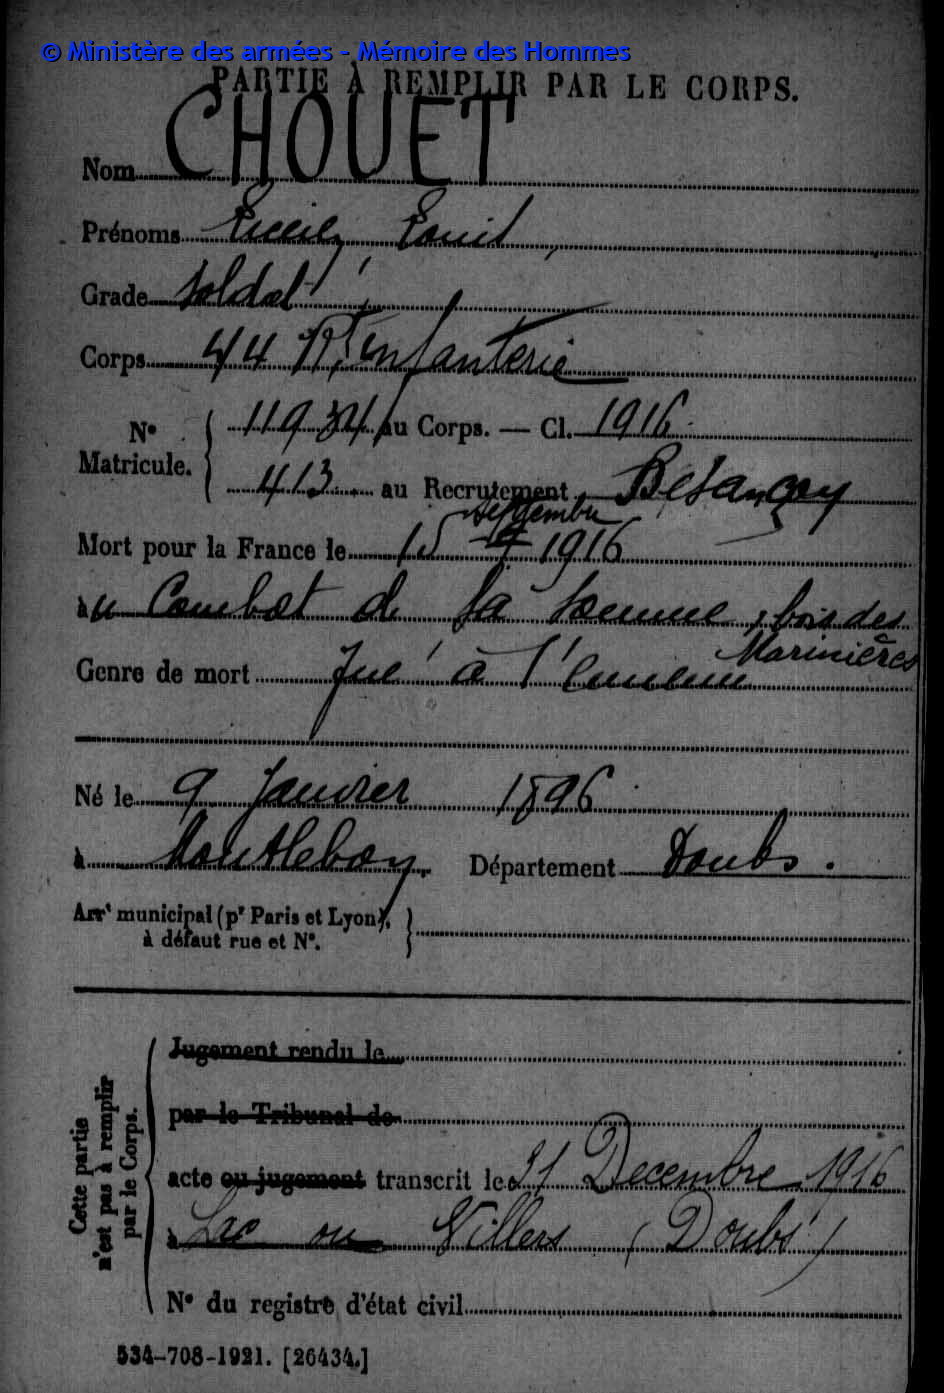 © Ministère des armées - Mémoire des Hommes
PARTIE À REMPLIR PAR LE CORPS.
Nom CHOUET
Prénoms Emile
Grade soldat
Corps 44 R. Infanterie
No Matricule. 11934 au Corps. — Cl. 1916
413 au Recrutement Besançon
septembre
Mort pour la France le 15 9 1916
au Combat de la Somme, bois des
Marinières
Genre de mort Tué à l'ennemi
Né le 9 Janvier 1896
à Montlebon. Département Doubs.
Arrt municipal (pr Paris et Lyon),
à défaut rue et No.
Cette partie
n'est pas à remplir
par le Corps.
Jugement rendu le
par le Tribunal de
acte ou jugement transcrit le 31 Decembre 1916
à Lac ou Villers (Doubs)
No du registre d'état civil
534-708-1921. [26434.]